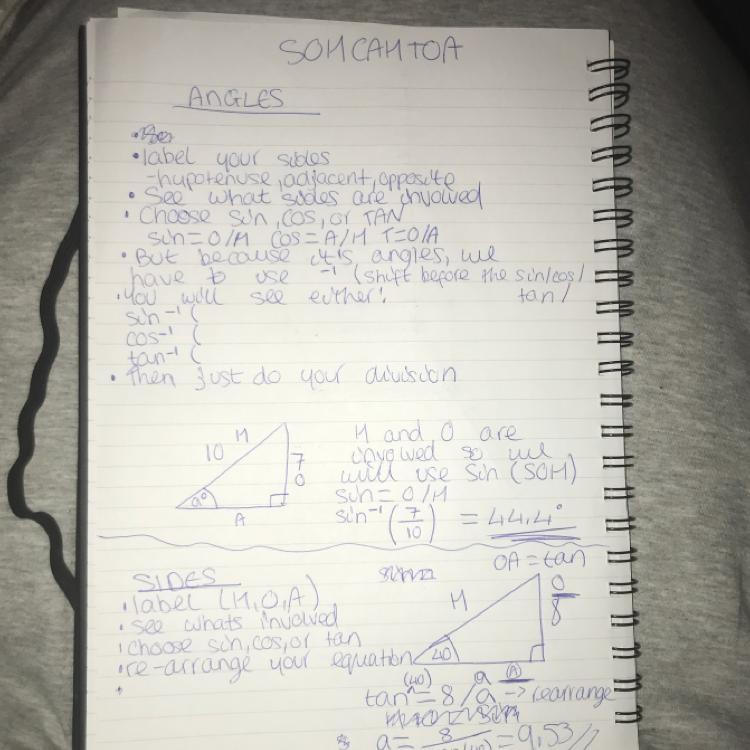 SOHCAHTOA
ANGLES
• label your sides
-hypotenuse, adjacent, opposite
• See what sides are involved
• Choose sin, cos, or TAN
sin=O/H COS=A/H T=O/A
• But because it is angles, we
have to use ⁻¹ (shift before the sin/cos/
tan/
• You will see either:
sin⁻¹ (
cos⁻¹ (
tan⁻¹ (
• Then just do your division
H
10
7
O
a°
A
H and O are
involved so we
will use Sin (SOH)
sin = O/H
sin⁻¹ (7/10) = 44.4°
SIDES
• label (H,O,A)
• see whats involved
• choose sin, cos, or tan
• re-arrange your equation
•
OA = tan
H
O
8
40
a
(A)
tan (40) = 8/a -> rearrange
a = 8
= 9.53//